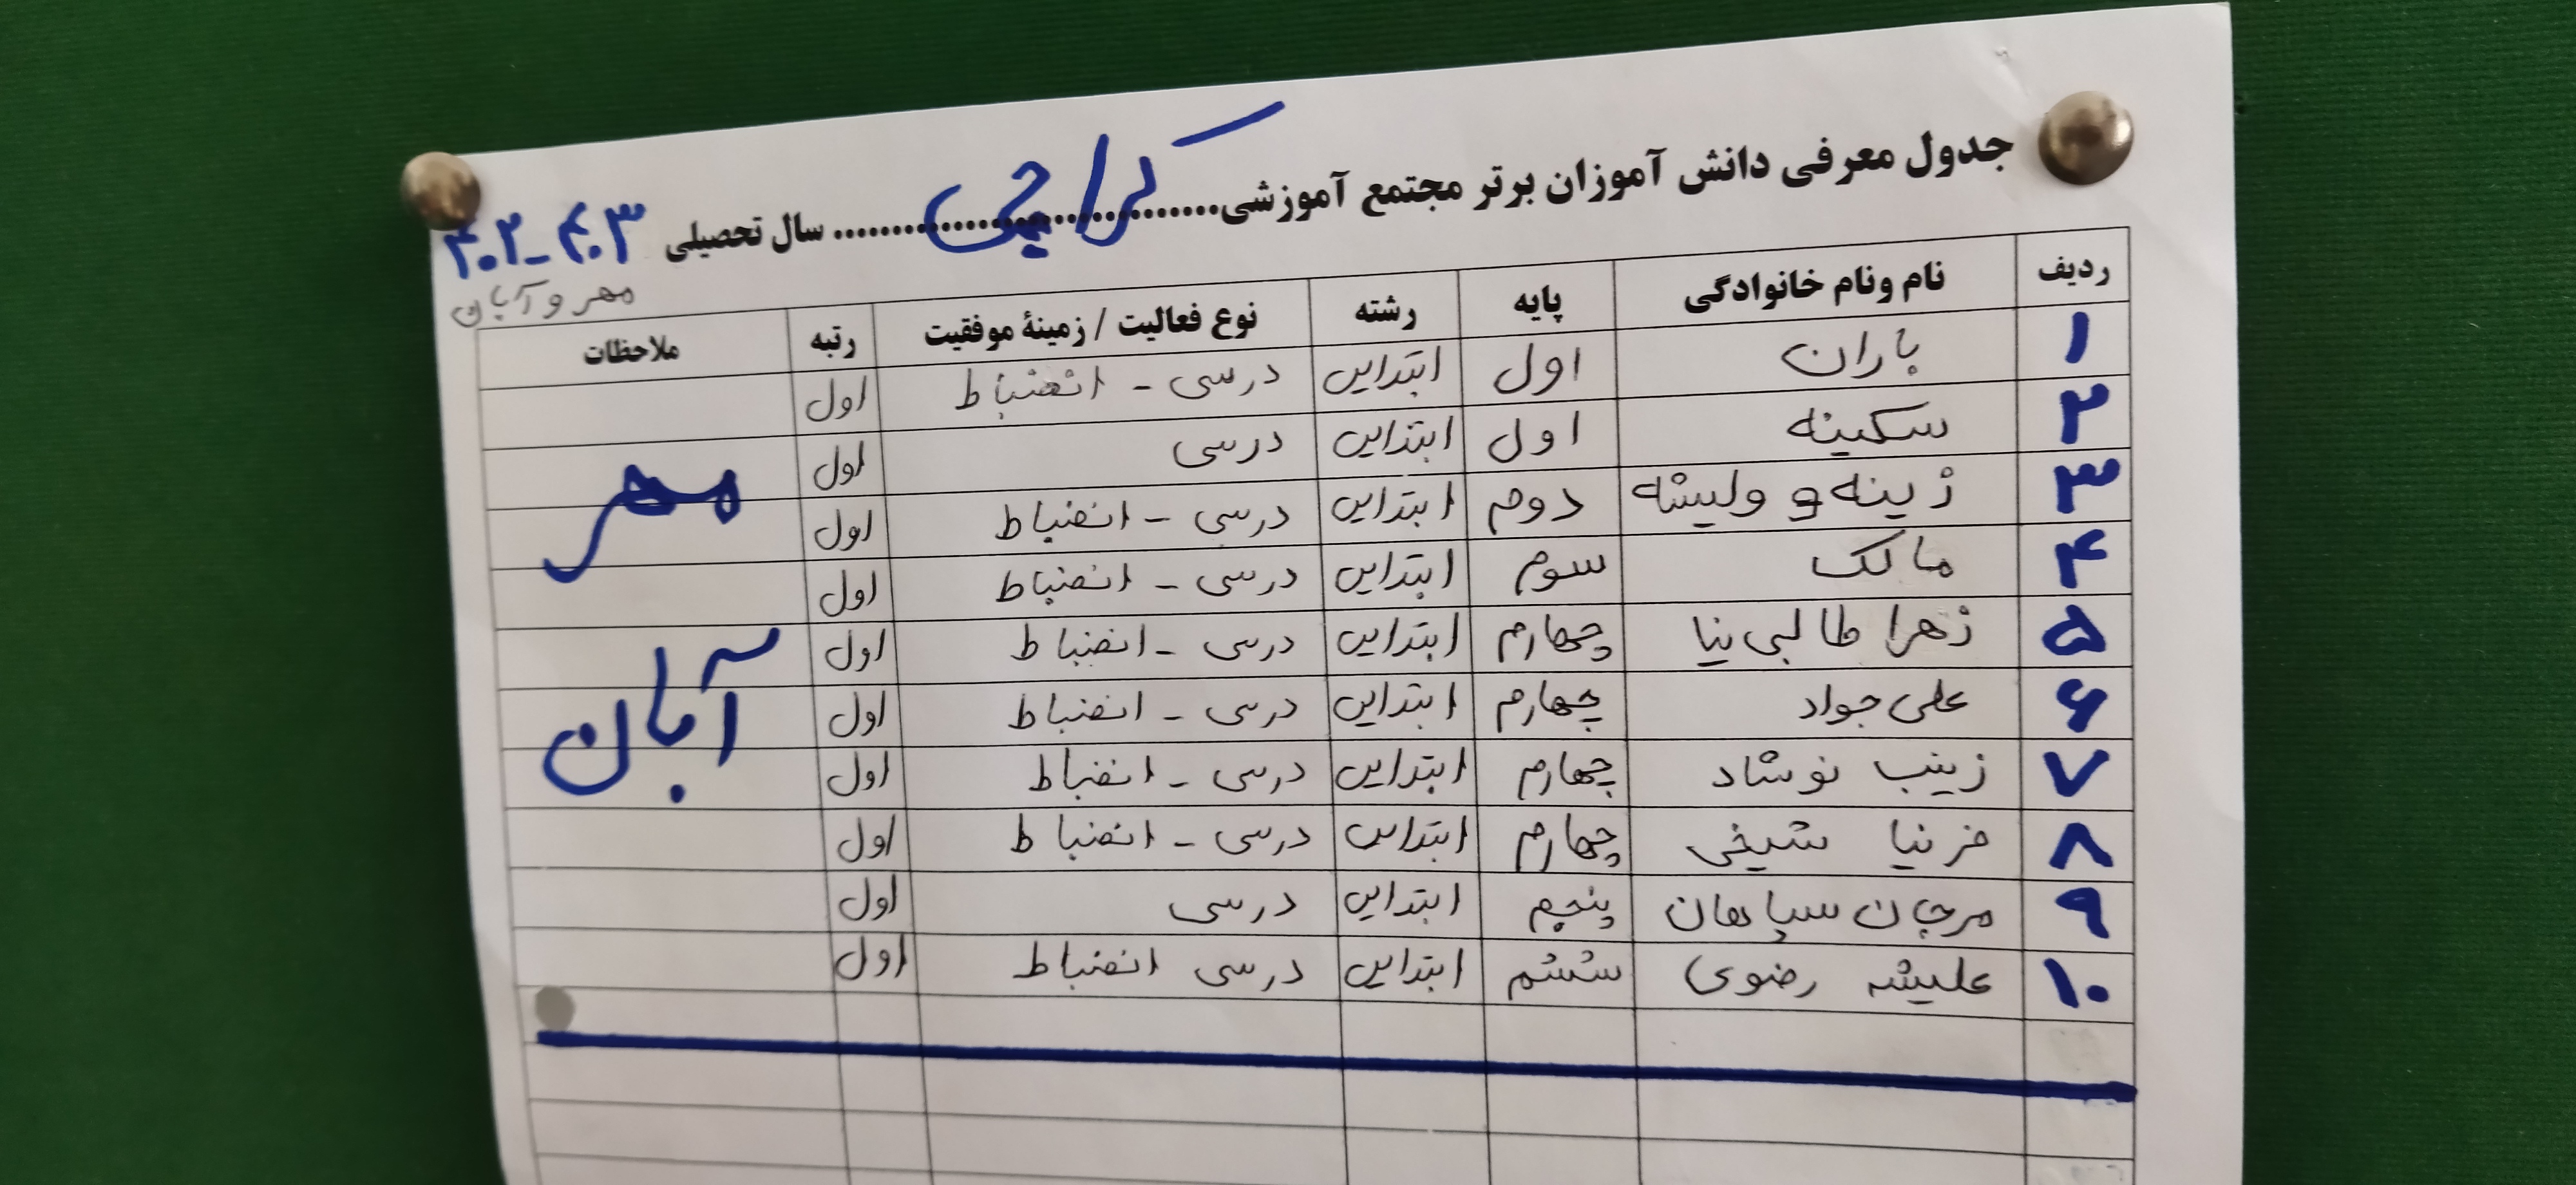 جدول معرفی دانش آموزان برتر مجتمع آموزشی........کراچی........ سال تحصیلی ۴۰۳-۴۰۲
مهر و آبان
ردیف نام ونام خانوادگی پایه رشته نوع فعالیت / زمینهٔ موفقیت رتبه ملاحظات
۱ باران اول ابتدایی درسی - انضباط اول
۲ سکینه اول ابتدایی درسی اول
۳ زینه و ولیشه دوم ابتدایی درسی - انضباط اول مهر
۴ مالک سوم ابتدایی درسی - انضباط اول
۵ زهرا طالبی نیا چهارم ابتدایی درسی - انضباط اول
۶ علی جواد چهارم ابتدایی درسی - انضباط اول آبان
۷ زینب نوشاد چهارم ابتدایی درسی - انضباط اول
۸ فرنیا شیخی چهارم ابتدایی درسی - انضباط اول
۹ مرجان سپاهان پنجم ابتدایی درسی اول
۱۰ علیشه رضوی ششم ابتدایی درسی انضباط اول